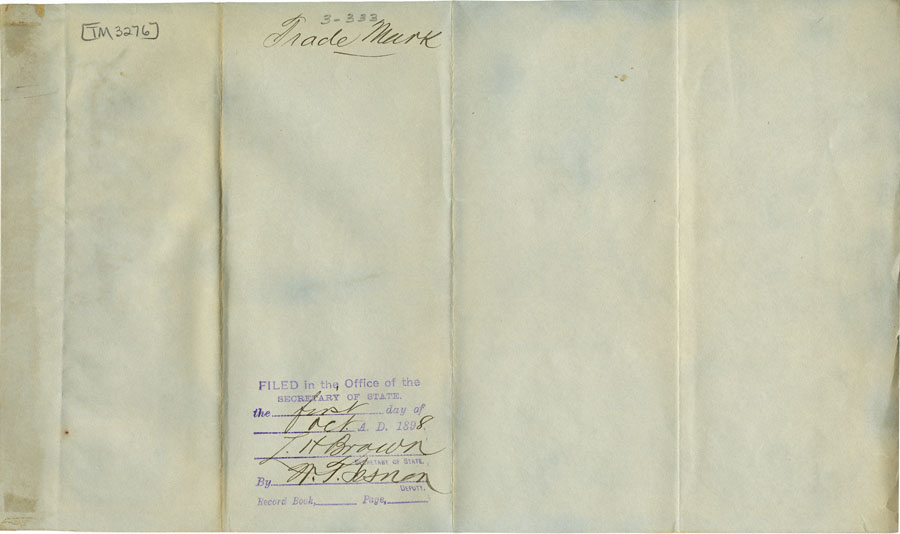 [TM3276]
3-333
Trade Mark
FILED in the Office of the
SECRETARY OF STATE.
the first day of
Oct A. D. 1898
L. H Brown
SECRETARY OF STATE.
By W. T.
DEPUTY.
Record Book, Page,